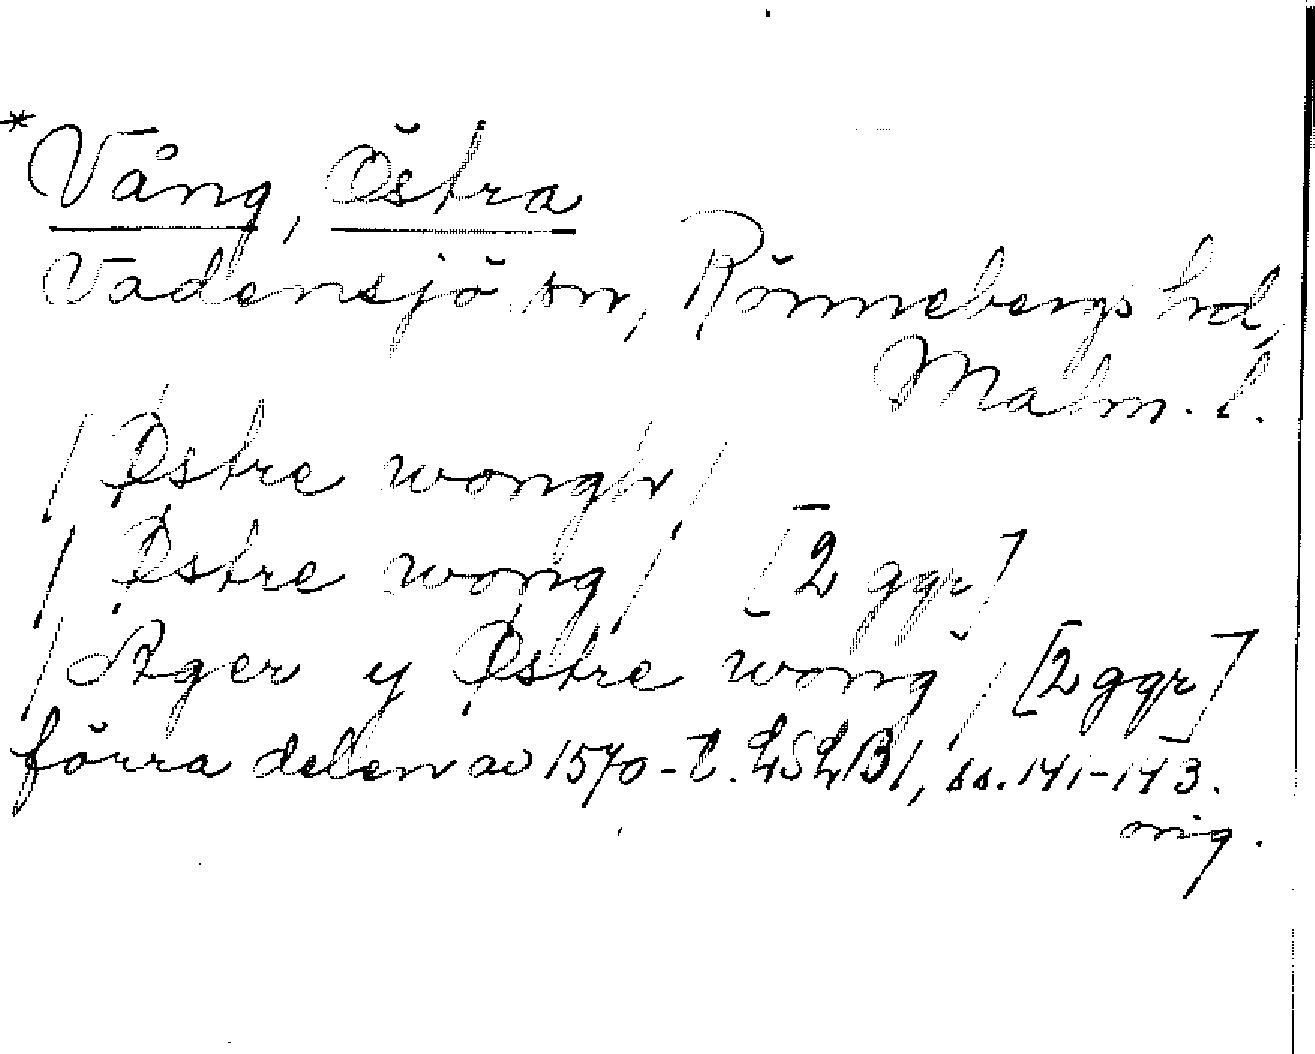 *Vång, Östra
Vadensjö sn, Rönnebergs hd,
Malm. l.
/ Østre wongh /
/ Østre wong / [2 ggr]
/ Ager y Østre wong / [2 ggr]
förra delen av 1570-t. LSLB 1, ss. 141-143.
orig.